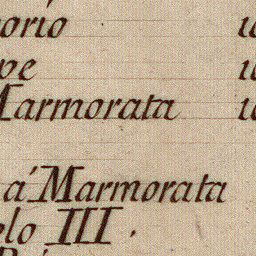 orio
pe
Marmorata
a Marmorata
elo III.